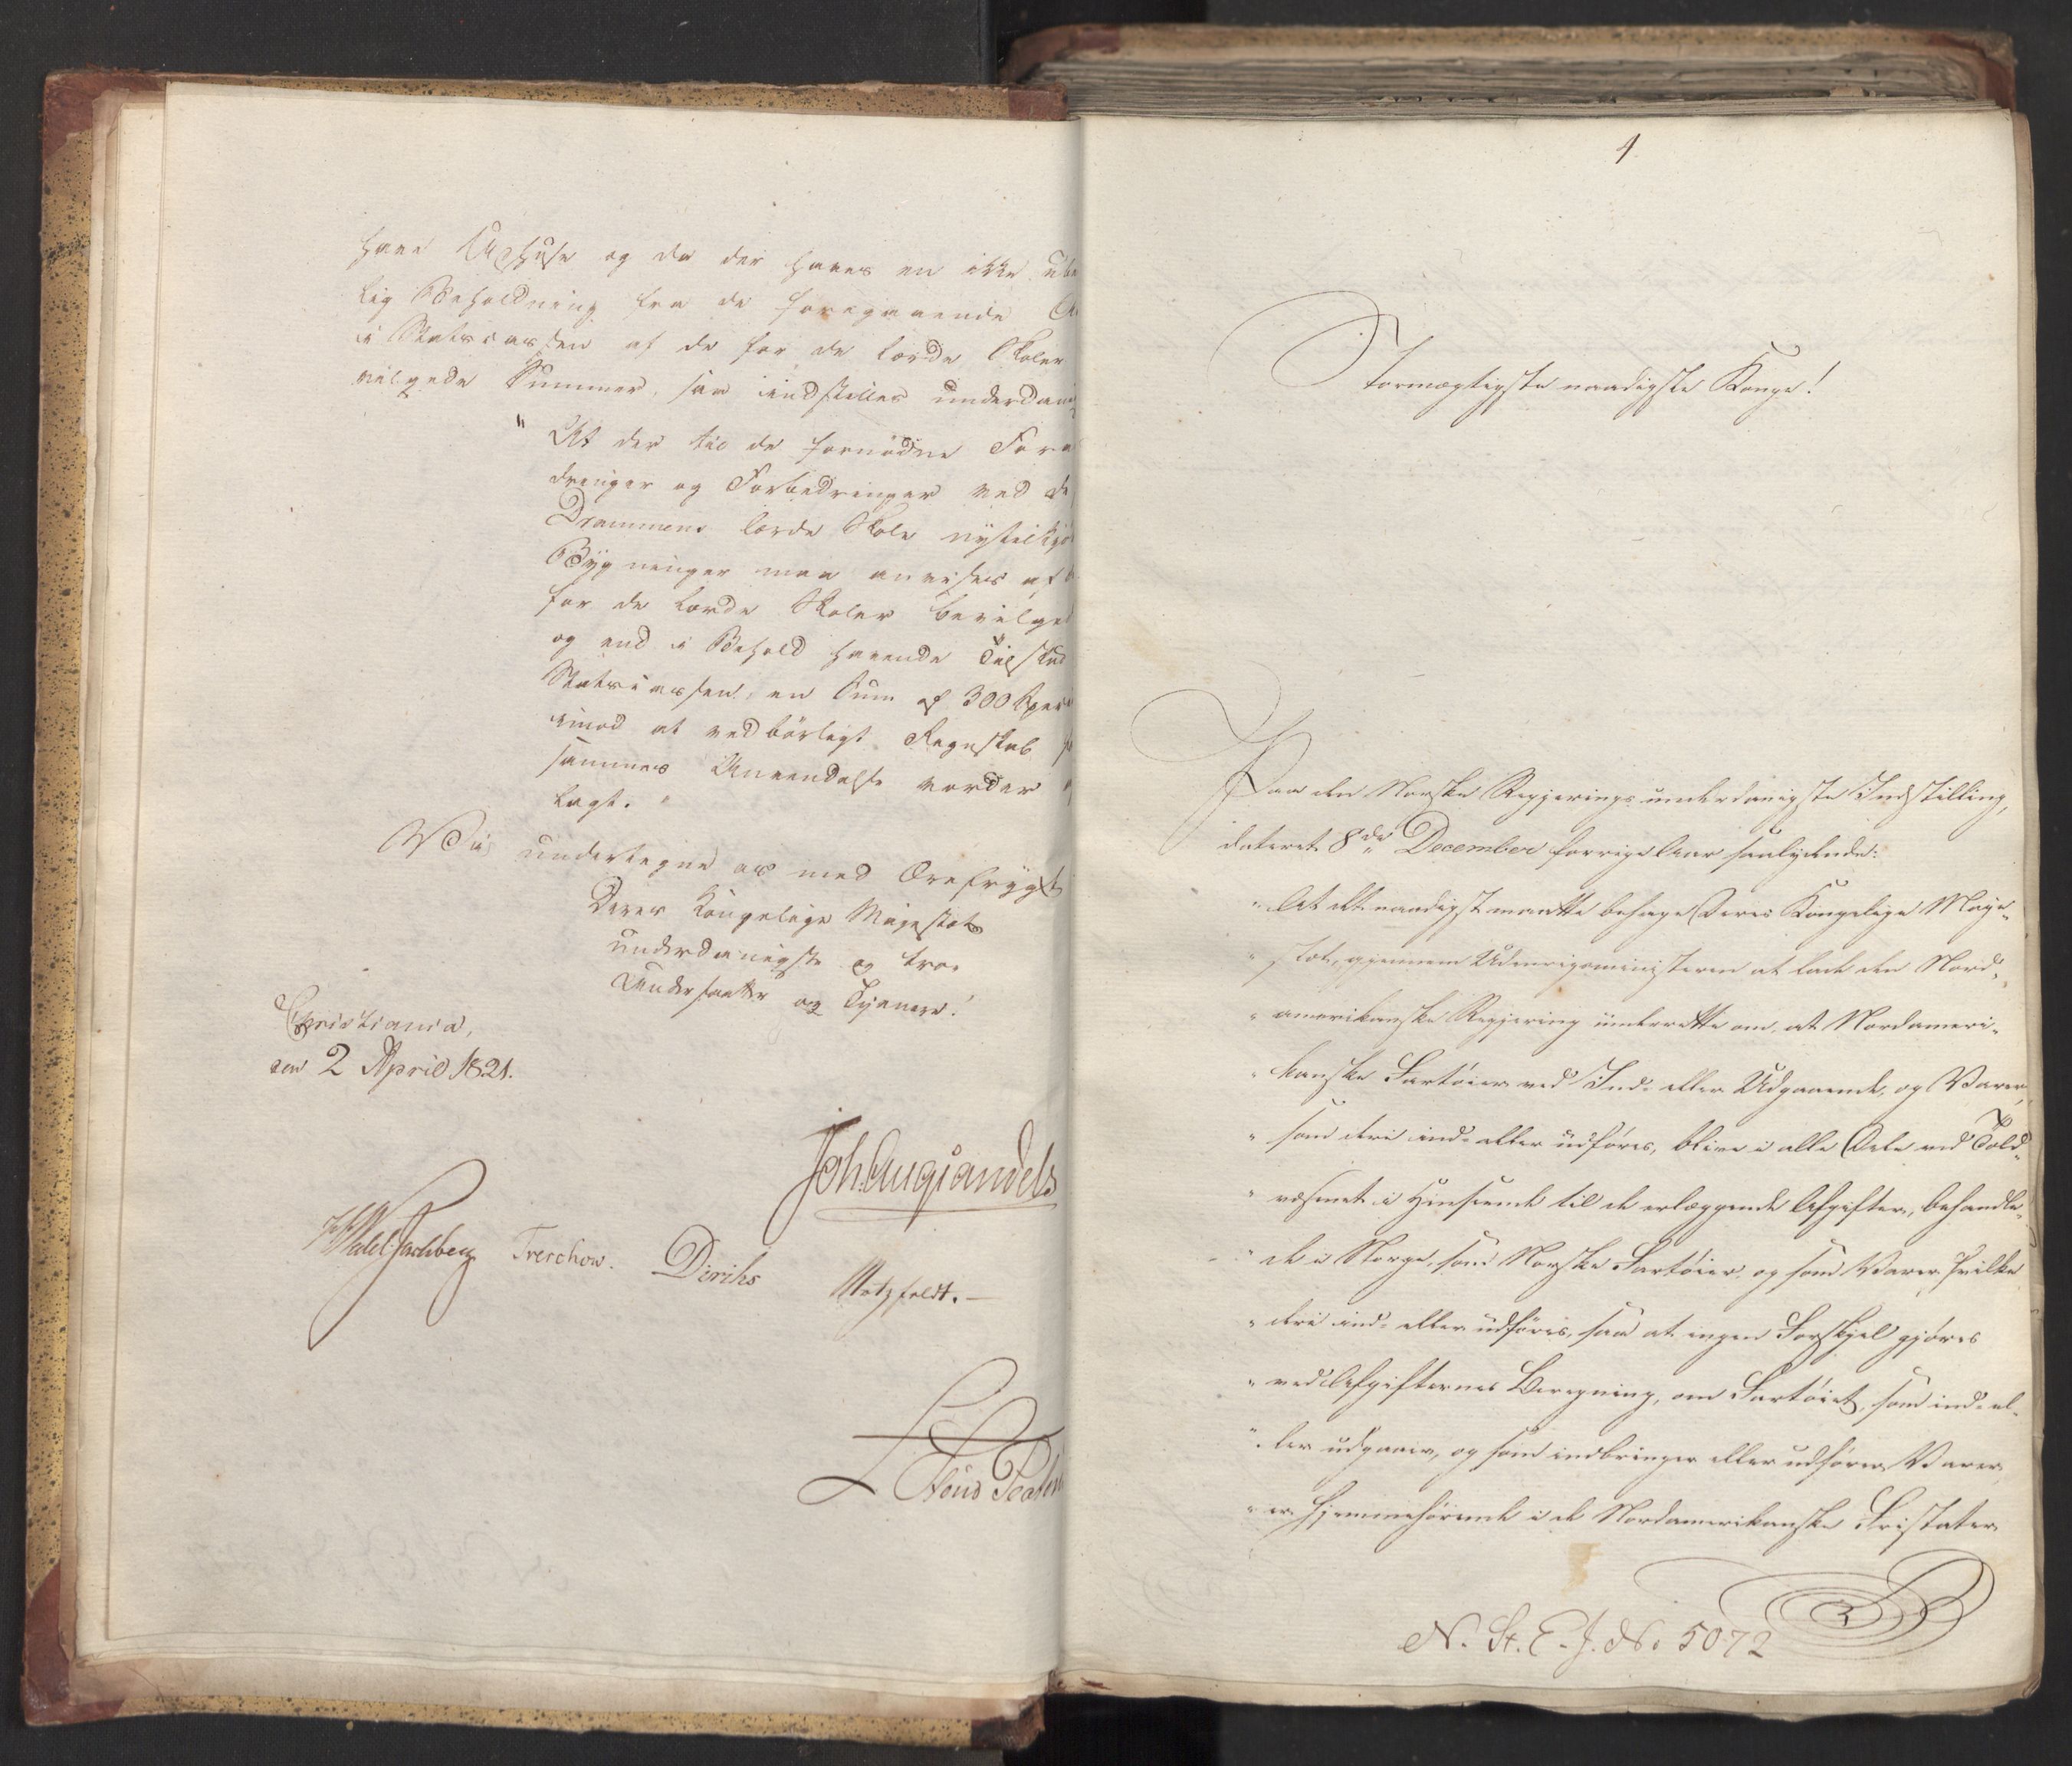 have Udhuse og da der haves en ikke ube
lig Beholdning fra de foregaaende
i Statscassen af de for de lærde Skoler
vilgede Summer, saa indstilles underdanig
" At der til de fornødne Foran
dringer og Forbedringer ved de
Drammens lærde Skole nylig tilkjø
Bygninger maa anvises af
for de lærde Skoler bevilge
og end i Behold havende Tilskud
Statscassen en Sum af 300 Spec
imod at vedbørligt Regnskab
sammes Anvendelse vorder
lagt. "
Vi undertegne os med Ærefrygt
Deres Kongelige Majestæts
underdanigste og troe
Undersaatter og Tjenere!
Christiania,
den 2 April 1821.
Joh. Aug. Sandels
Treschow. Diriks Motzfeldt. —
1
Stormægtigste naadigste Konge!
Paa den Norske Regjerings underdanigste Indstilling,
dateret 8de December forrige Aar saalydende:
" At det naadigst maatte behage Deres Kongelige Maje-
" stæt, gjennem Udenrigsministeren at lade den Nord-
" amerikanske Regjering underrette om, at Nordameri-
" kanske Fartøier ved Ind- eller Udgaaende, og Varer,
" som deri ind- eller udføres, blive i alle Dele ved Told-
" væsenet i Henseende til de erlæggende Afgifter, behandle-
" de i Norge, som Norske Fartøier, og som Varer hvilke
" deri ind- eller udføres, saa at ingen Forskjel gjøres
" ved Afgifternes Beregning, om Fartøiet, som ind- el-
" ler udgaaer, og som indbringer eller udfører Varer,
" er hjemmehørende i de Nordamerikanske Fristater
N. St. E. J. No 5072